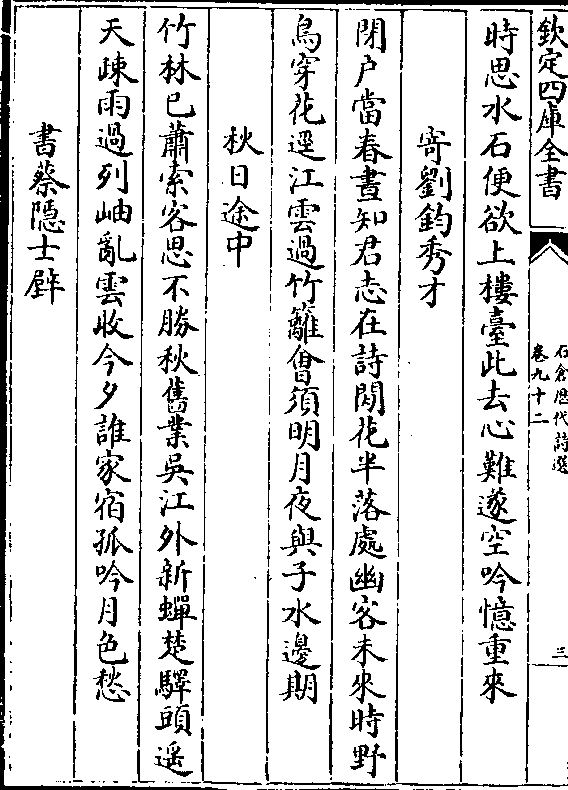 欽定四庫全書
石倉歷代詩選
卷九十二
三
時思水石便欲上樓臺此去心難遂空吟憶重來
寄劉鈞秀才
閉户當春晝知君志在詩閑花半落處幽客未來時野
鳥穿花逕江雲過竹籬會須明月夜與子水邊期
秋日途中
竹林已蕭索客思不勝秋舊業吳江外新蟬楚驛頭遥
天疎雨過列岫亂雲收今夕誰家宿孤吟月色愁
書蔡隱士壁